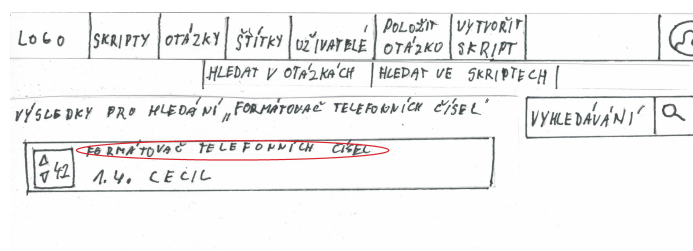 LOGO
SKRIPTY
OTÁZKY
ŠTÍTKY
UŽIVATELÉ
POLOŽIT
OTÁZKU
VYTVOŘIT
SKRIPT
HLEDAT V OTÁZKÁCH
HLEDAT VE SKRIPTECH
VÝSLEDKY PRO HLEDÁNÍ „FORMÁTOVAČ TELEFONNÍCH ČÍSEL"
VYHLEDÁVÁNÍ
FORMÁTOVAČ TELEFONNÍCH ČÍSEL
42
1.4. CECIL